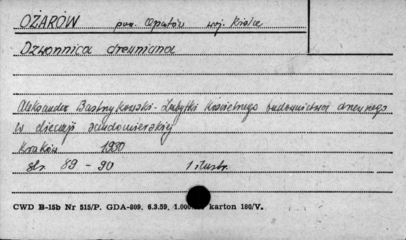 OŻARÓW pow. Opatów woj. Kielce
Dzwonnica drewniana
Aleksander Bastrzykowski - Zabytki kościelnego budownictwa drewnianego
w diecezji sandomierskiej
Kraków 1930
str. 89 - 90 1 ilustr.
CWD B-15b Nr 515/P. GDA-809. 6.3.59. 1.000 karton 180/V.